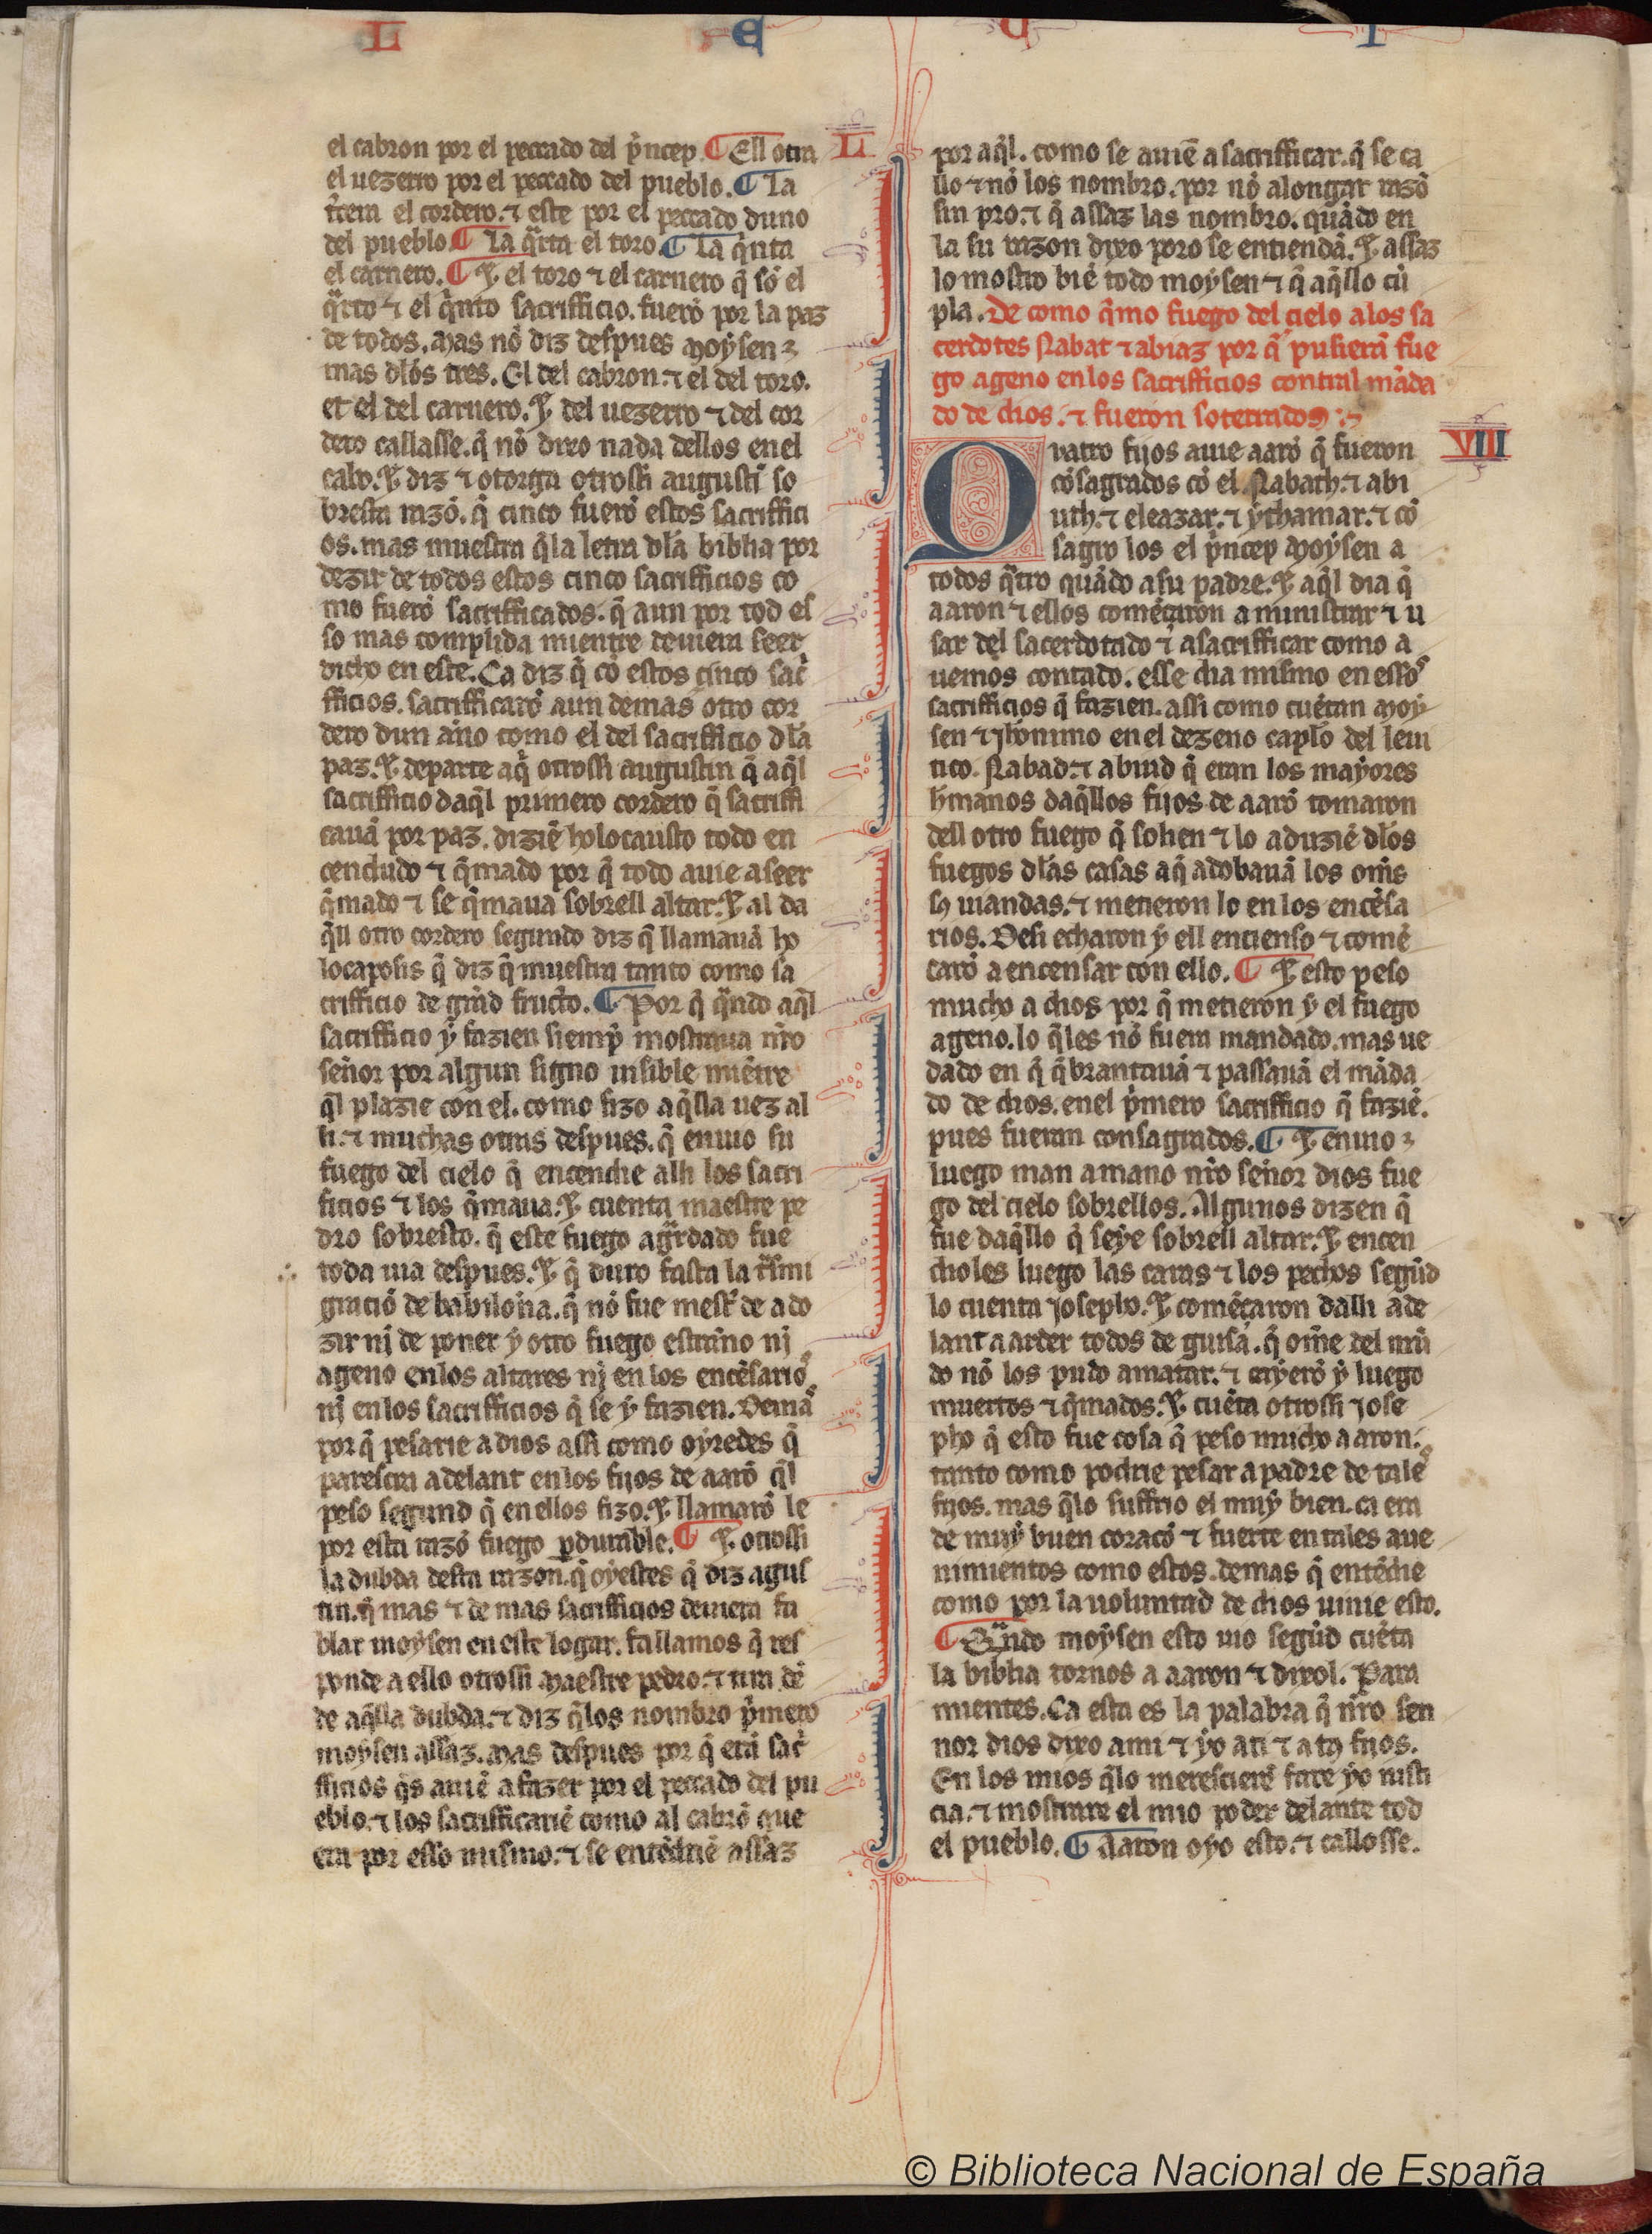 L E U I
el cabron por el peccado del p̃ncep. ¶ Ell otra
el uezerro por el peccado del pueblo. ¶ La
t̃cera el cordero. ⁊ este por el peccado duno
del pueblo. ¶ La q̃rta el toro. ¶ La q̃nta
el carnero. ¶ ⁊ el toro ⁊ el carnero q̃ sõ el
q̃rto ⁊ el q̃nto sacrifficio. fuerõ por la paz
de todos. Mas nõ diz despues Moysen
mas dlos tres. El del cabron. ⁊ el del toro.
et el del carnero. ⁊ del uezerro ⁊ del cor
dero callasse. q̃ nõ dixo nada dellos en el
cabo. ⁊ diz ⁊ otorga otrossi augustĩ so
bresta razõ. q̃ cinco fuerõ estos sacriffici
os. mas muestra q̃ la letra dla biblia por
dezir de todos estos cinco sacrifficios co
mo fuerõ sacrifficados. q̃ aun por tod es
so mas complida mientre deuiera seer
dicho en este. Ca diz q̃ cõ estos cinco sac̃
fficios. sacrifficarõ aun demas otro cor
dero dun año como el del sacrifficio dla
paz. ⁊ departe aq̃ otrossi augustin q̃ aq̃l
sacrifficio daq̃l primero cordero q̃ sacriffi
cauã por paz. diziẽ holocausto todo en
cendudo ⁊ q̃mado por q̃ todo auie a seer
q̃mado ⁊ se q̃maua sobrell altar. ⁊ al da
q̃ll otro cordero segundo diz q̃ llamauã ho
locaposis q̃ diz q̃ muestra tanto como sa
crifficio de grãd fructo. ¶ Por q̃ q̃ndo aq̃l
sacrifficio y fazien siemp̃ mostraua nr̃o
señor por algun signo uisible miẽtre
q̃l plazie con el. como fizo aq̃lla uez al
li. ⁊ muchas otras despues. q̃ enuio su
fuego del cielo q̃ encendie alli los sacri
ficios ⁊ los q̃maua. ⁊ cuenta maestre pe
dro sobresto. q̃ este fuego agr̃dado fue
toda uia despues. ⁊ q̃ duro fasta la tr̃smi
graciõ de babiloña. q̃ nõ fue mest̃ de ado
zir nj de poner y otro fuego estraño nj
ageno en los altares nj en los encẽsarios
nj en los sacrifficios q̃ se y fazien. Demas
por q̃ pesarie a dios assi como oyredes q̃
parescra adelant en los fijos de aarõ q̃l
peso segund q̃ en ellos fizo. ⁊ llamarõ le
por esta razõ fuego ꝑdurable. ¶ ⁊ otrossi
la dubda desta razon. q̃ oyestes q̃ diz agus
tin. q̃ mas ⁊ de mas sacrifficios deuiera fa
blar moysen en este logar. fallamos q̃ res
ponde a ello otrossi Maestre pedro. ⁊ tira dẽ
de aq̃lla dubda. ⁊ diz q̃ los nombro p̃mero
moysen assaz. Mas despues por q̃ erã sac̃
fficios q̃s auiẽ a fazer por el peccado del pu
eblo. ⁊ los sacrifficariẽ como al cabrõ que
era por esso mismo. ⁊ se entẽdriẽ assaz
L
por aq̃l. como se auiẽ a sacrifficar. q̃ se ca
llo ⁊ nõ los nombro. por nõ alongar razõ
sin pro. ⁊ q̃ assaz las nombro. quãdo en
la su razon dixo poro se entiendã. ⁊ assaz
lo mostro biẽ todo moysen ⁊ q̃ aq̃llo cũ
pla. De como q̃mo fuego del cielo a los sa
cerdotes Nabat ⁊ abiaz por q̃ pusierã fue
go ageno en los sacrifficios contral mãda
do de dios. ⁊ fueron soterrados
VIII
Quatro fijos auie aarõ q̃ fueron
cõsagrados cõ el. Nabath. ⁊ abi
uth. ⁊ eleazar. ⁊ ythamar. ⁊ cõ
sagro los el p̃ncep Moysen a
todos q̃tro quãdo a su padre. ⁊ aq̃l dia q̃
aaron ⁊ ellos comẽçaron a ministrar ⁊ u
sar del sacerdotado ⁊ a sacrifficar como a
uemos contado. esse dia mismo en essos
sacrifficios q̃ fazien. assi como cuẽtan Moy
sen ⁊ Jh̃onimo en el dezeno capl̃o del leui
tico. Nabad. ⁊ abiud q̃ eran los mayores
h̃manos daq̃llos fijos de aarõ tomaron
dell otro fuego q̃ solien ⁊ lo aduziẽ dlos
fuegos dlas casas aq̃ adobauã los om̃s
sꝯ uiandas. ⁊ metieron lo en los encẽsa
rios. Desi echaron y ell encienso ⁊ comẽ
çarõ a encensar con ello. ¶ ⁊ esto peso
mucho a dios por q̃ metieron y el fuego
ageno. lo q̃les nõ fuera mandado. mas ue
dado en q̃ q̃brantauã ⁊ passauã el mãda
do de dios. en el p̃mero sacrifficio q̃ faziẽ.
pues fueran consagrados. ¶ ⁊ enuio
luego man a mano nr̃o señor dios fue
go del cielo sobrellos. Algunos dizen q̃
fue daq̃llo q̃ seye sobrell altar. ⁊ encen
dioles luego las caras ⁊ los pechos segũd
lo cuenta Josepho. ⁊ comẽçaron dalli ade
lant a arder todos de guisa. q̃ om̃e del mũ
do nõ los pudo amatar. ⁊ cayerõ y luego
muertos ⁊ q̃mados. ⁊ cuẽta otrossi Jose
pho q̃ esto fue cosa q̃ peso mucho a aron.
tanto como podrie pesar a padre de tales
fijos. mas q̃lo suffrio el muy bien. ca era
de muy buen coraçõ ⁊ fuerte en tales aue
nimientos como estos. demas q̃ entẽdie
como por la uoluntad de dios uinie esto.
¶ Quãdo moysen esto uio segũd cuẽta
la biblia tornos a aaron ⁊ dixol. Para
mientes. Ca esta es la palabra q̃ nr̃o sen
nor dios dixo a mi ⁊ yo a ti ⁊ a tꝯ fijos.
En los mios q̃lo merescierẽ fare yo iusti
cia. ⁊ mostrare el mio poder delante tod
el pueblo. ¶ Aaron oyo esto. ⁊ callosse.
© Biblioteca Nacional de España